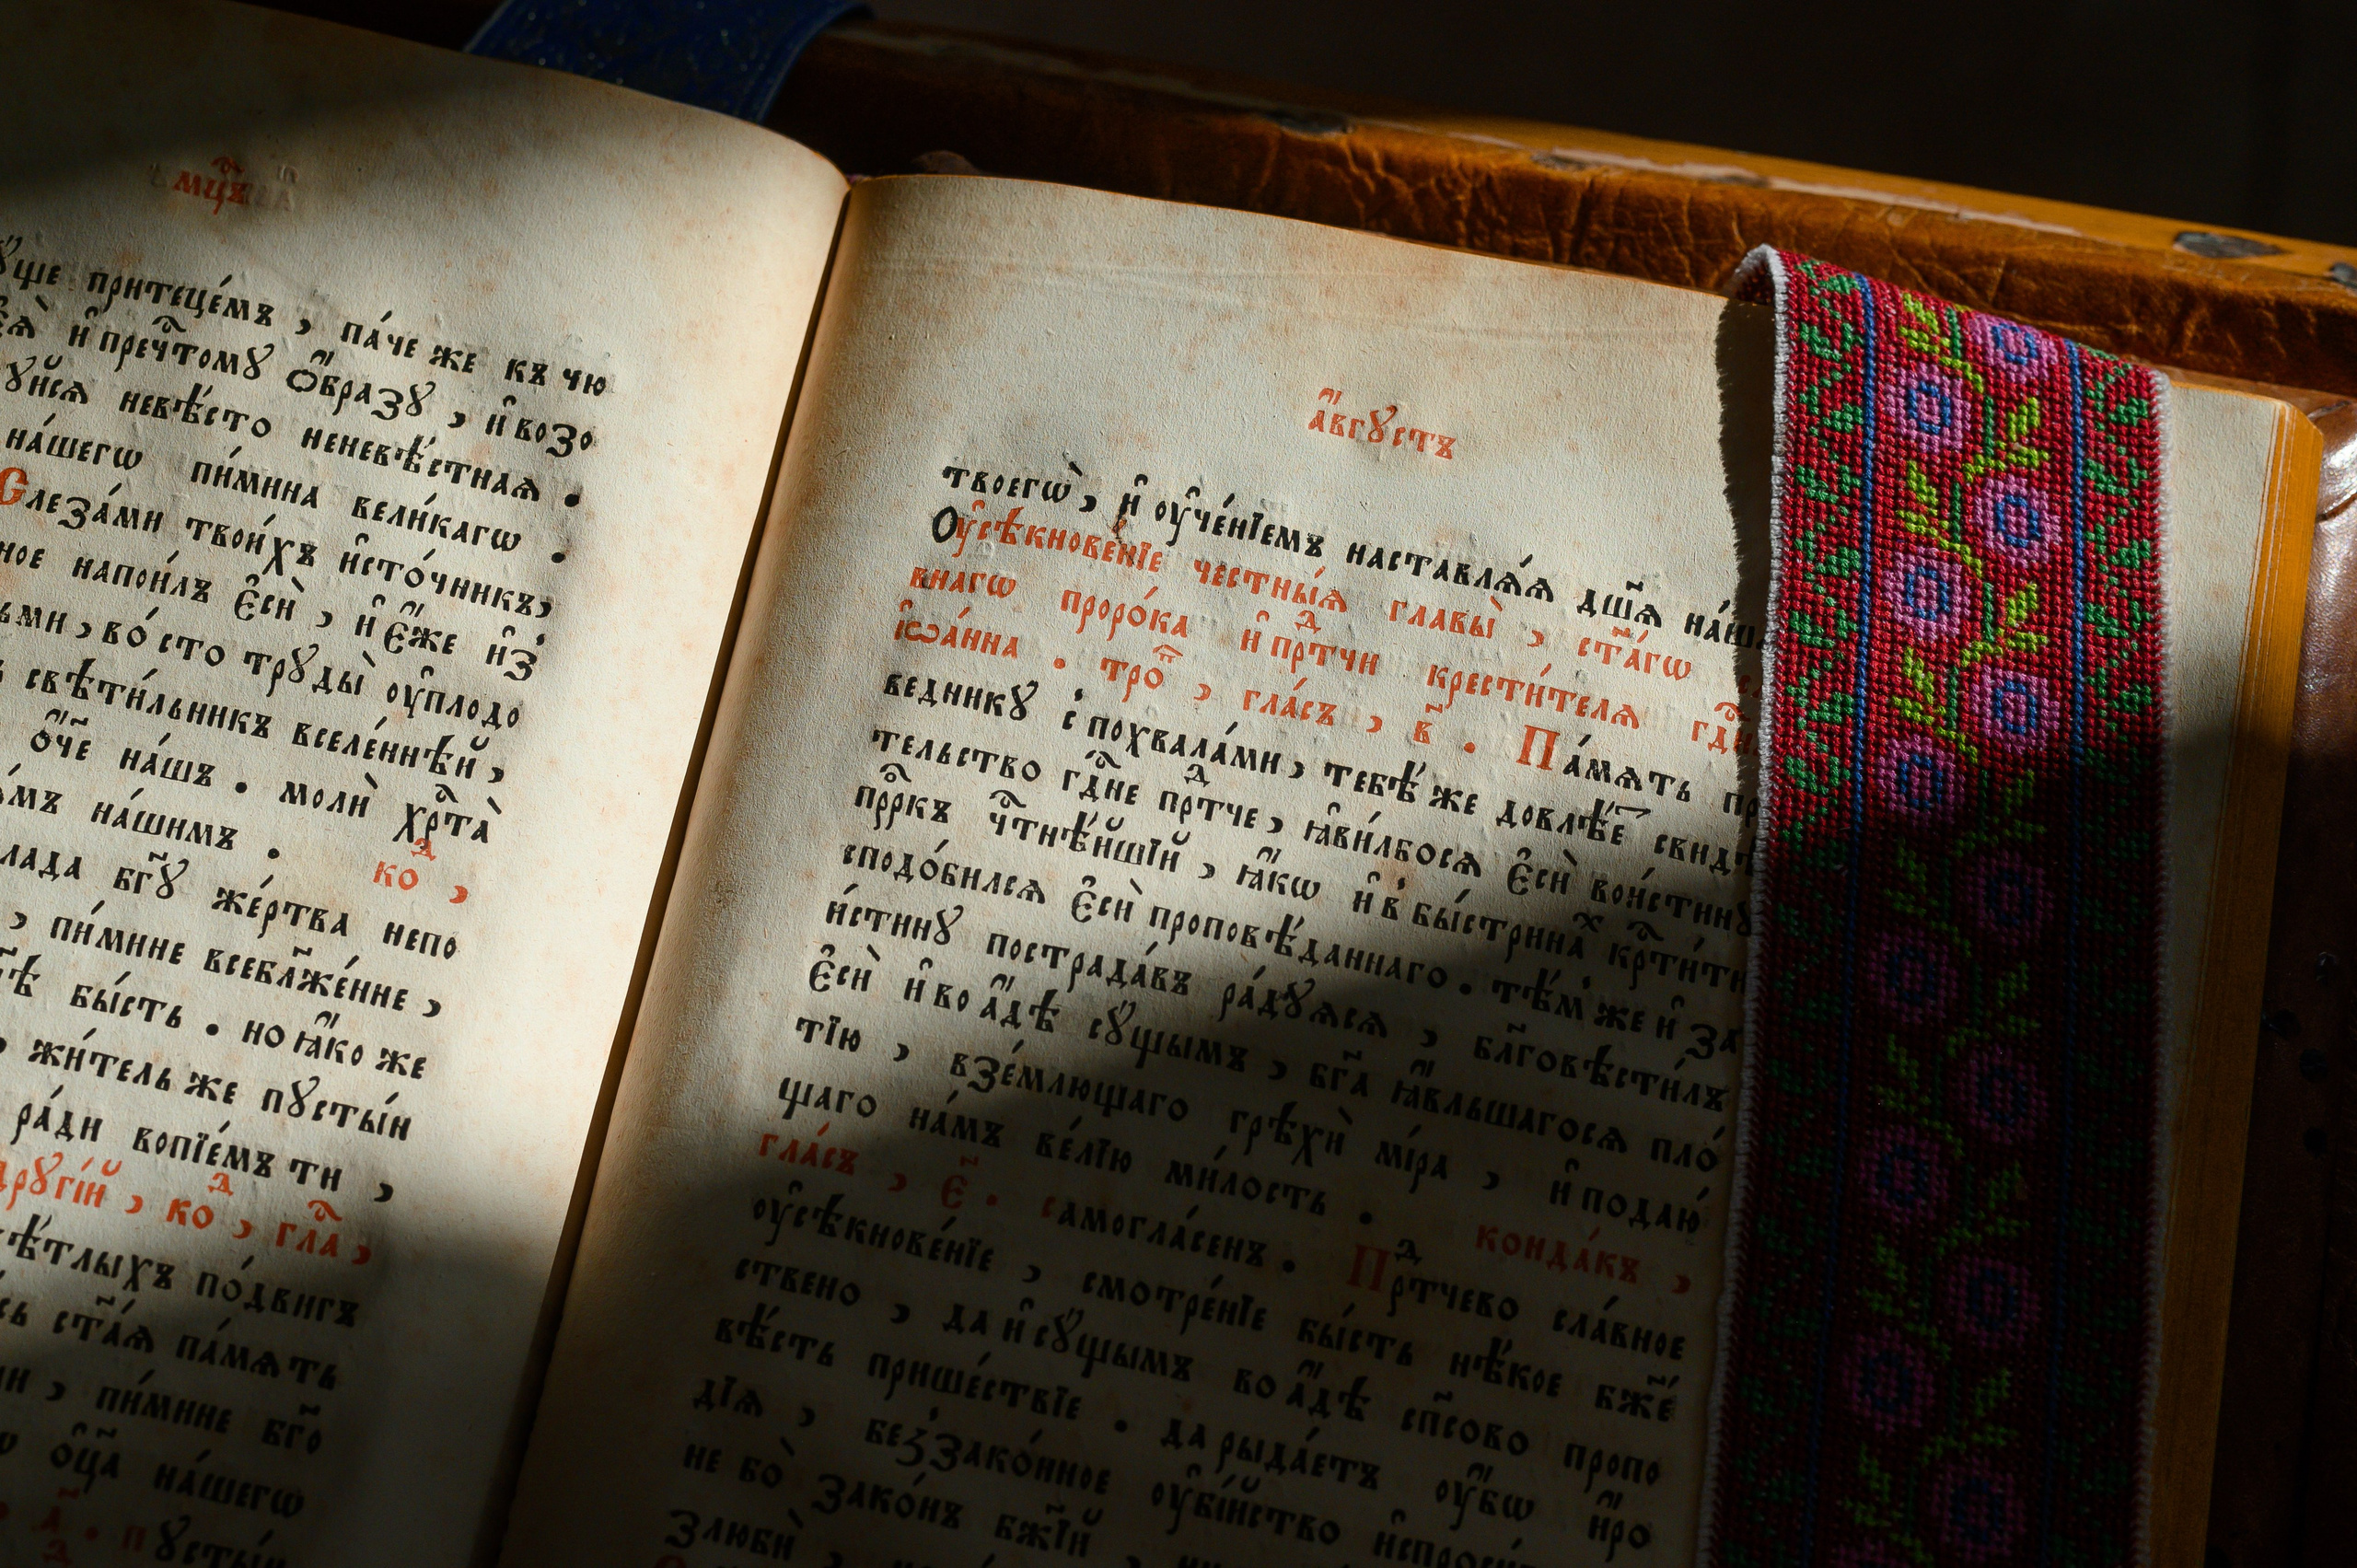 мцⷭ҇ъ
ꙋще притеце́мъ , па́че же къ чю
и҆ пречⷭ҇томꙋ ѻ҆́бразꙋ , и҆ возо
невѣ́сто неневѣ́стная .
на́шегѡ пи́мина вели́кагѡ .
Слеза́ми твои́хъ и҆сто́чникъ ,
ное напои́лъ є҆сѝ , и҆ є҆́же и҆з̾
ьми , во́ сто трꙋды̀ оу҆плодо
свѣти́льникъ вселе́ннѣй ,
ѻ҆́ч҃е на́шъ . молѝ хрⷭ҇та̀
мъ на́шимъ . коⷣ ,
лада бг҃ꙋ же́ртва непо
, пи́мине всебл҃же́нне ,
бы́сть . но ꙗ҆́ко же
, жи́тель же пꙋсты́н
ра́ди вопїе́мъ ти ,
дрꙋгі́й , коⷣ , глаⷭ҇ ,
ѣ́тлыхъ по́двигъ
ст҃а́ѧ па́мѧть
и , пи́мине бг҃о
ѻ҆ц҃а̀ на́шегѡ
пꙋсты́н
а҆́вгꙋстъ
твоегѡ̀ , и҆ оу҆че́нїемъ наставлѧ́ѧ дш҃ѧ на́шѧ
Оу҆сѣкнове́нїе честны́ѧ главы̀ , ст҃а́гѡ
внагѡ проро́ка и҆ прⷣтчи крести́телѧ гдⷭ҇нѧ
і҆ѡа́нна . троⷫ҇ , гла́съ , в҃ . Па́мѧть пра
ведникꙋ с̾ похвала́ми , тебѣ́ же довлѣ́етъ свидѣ
тельство гдⷭ҇не прⷣтче , ꙗ҆ви́лбосѧ є҆сѝ вои́стинꙋ
прⷪ҇ркъ чⷭ҇тнѣ́йшїй , ꙗ҆́кѡ и҆ в̾ бы́стринаⷯ крⷭ҇ти́ти
сподо́билсѧ є҆сѝ проповѣ́даннаго . тѣ́м̾ же и҆ за
и҆́стинꙋ пострада́въ ра́дꙋѧсѧ , бл҃говѣсти́лъ
є҆сѝ и҆ во а҆́дѣ сꙋ́щымъ , бг҃а ꙗ҆́вльшагосѧ пло́
тїю , взе́млющаго грѣхѝ мі́ра , и҆ подаю́
щаго на́мъ ве́лїю ми́лость . конда́къ ,
гла́съ , є҃ . самогла́сенъ . Прⷣтчево сла́вное
оу҆сѣкнове́нїе , смотре́нїе бы́сть нѣ́кое бж҃е́
ствено , да и҆ сꙋ́щымъ во а҆́дѣ сп҃сово пропо
вѣ́сть прише́ствїе . да рыда́етъ оу҆́бѡ и҆́ро
дїѧ , без̾зако́нное оу҆бі́йство и҆спроси́
не бо̀ зако́нъ бж҃їй ,
злюби